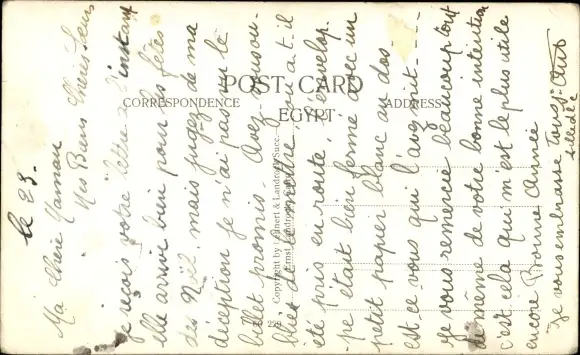 POST CARD
CORRESPONDENCE
ADDRESS
EGYPT
Copyright by Lehnert & Landrock Succ.
Ernst Landrock
le 23.
Ma Chère Maman
Mes Biens Chères Sœurs
Je reçois votre lettre à l'instant
elle arrive bien pour les fêtes
des Noël. mais jugez de ma
déception je n'ai pas vu le
billet promis. Avez-vous ou-
bliés de le mettre, ou a-t-il
été pris en route, l'envelop-
pe était bien fermé avec un
petit papier blanc au dos
est ce vous qui l'avez mit----
Je vous remercie beaucoup tout
de même de votre bonne intention
c'est cela qui m'est le plus utile
encore Bonne Année
Je vous embrasse tous